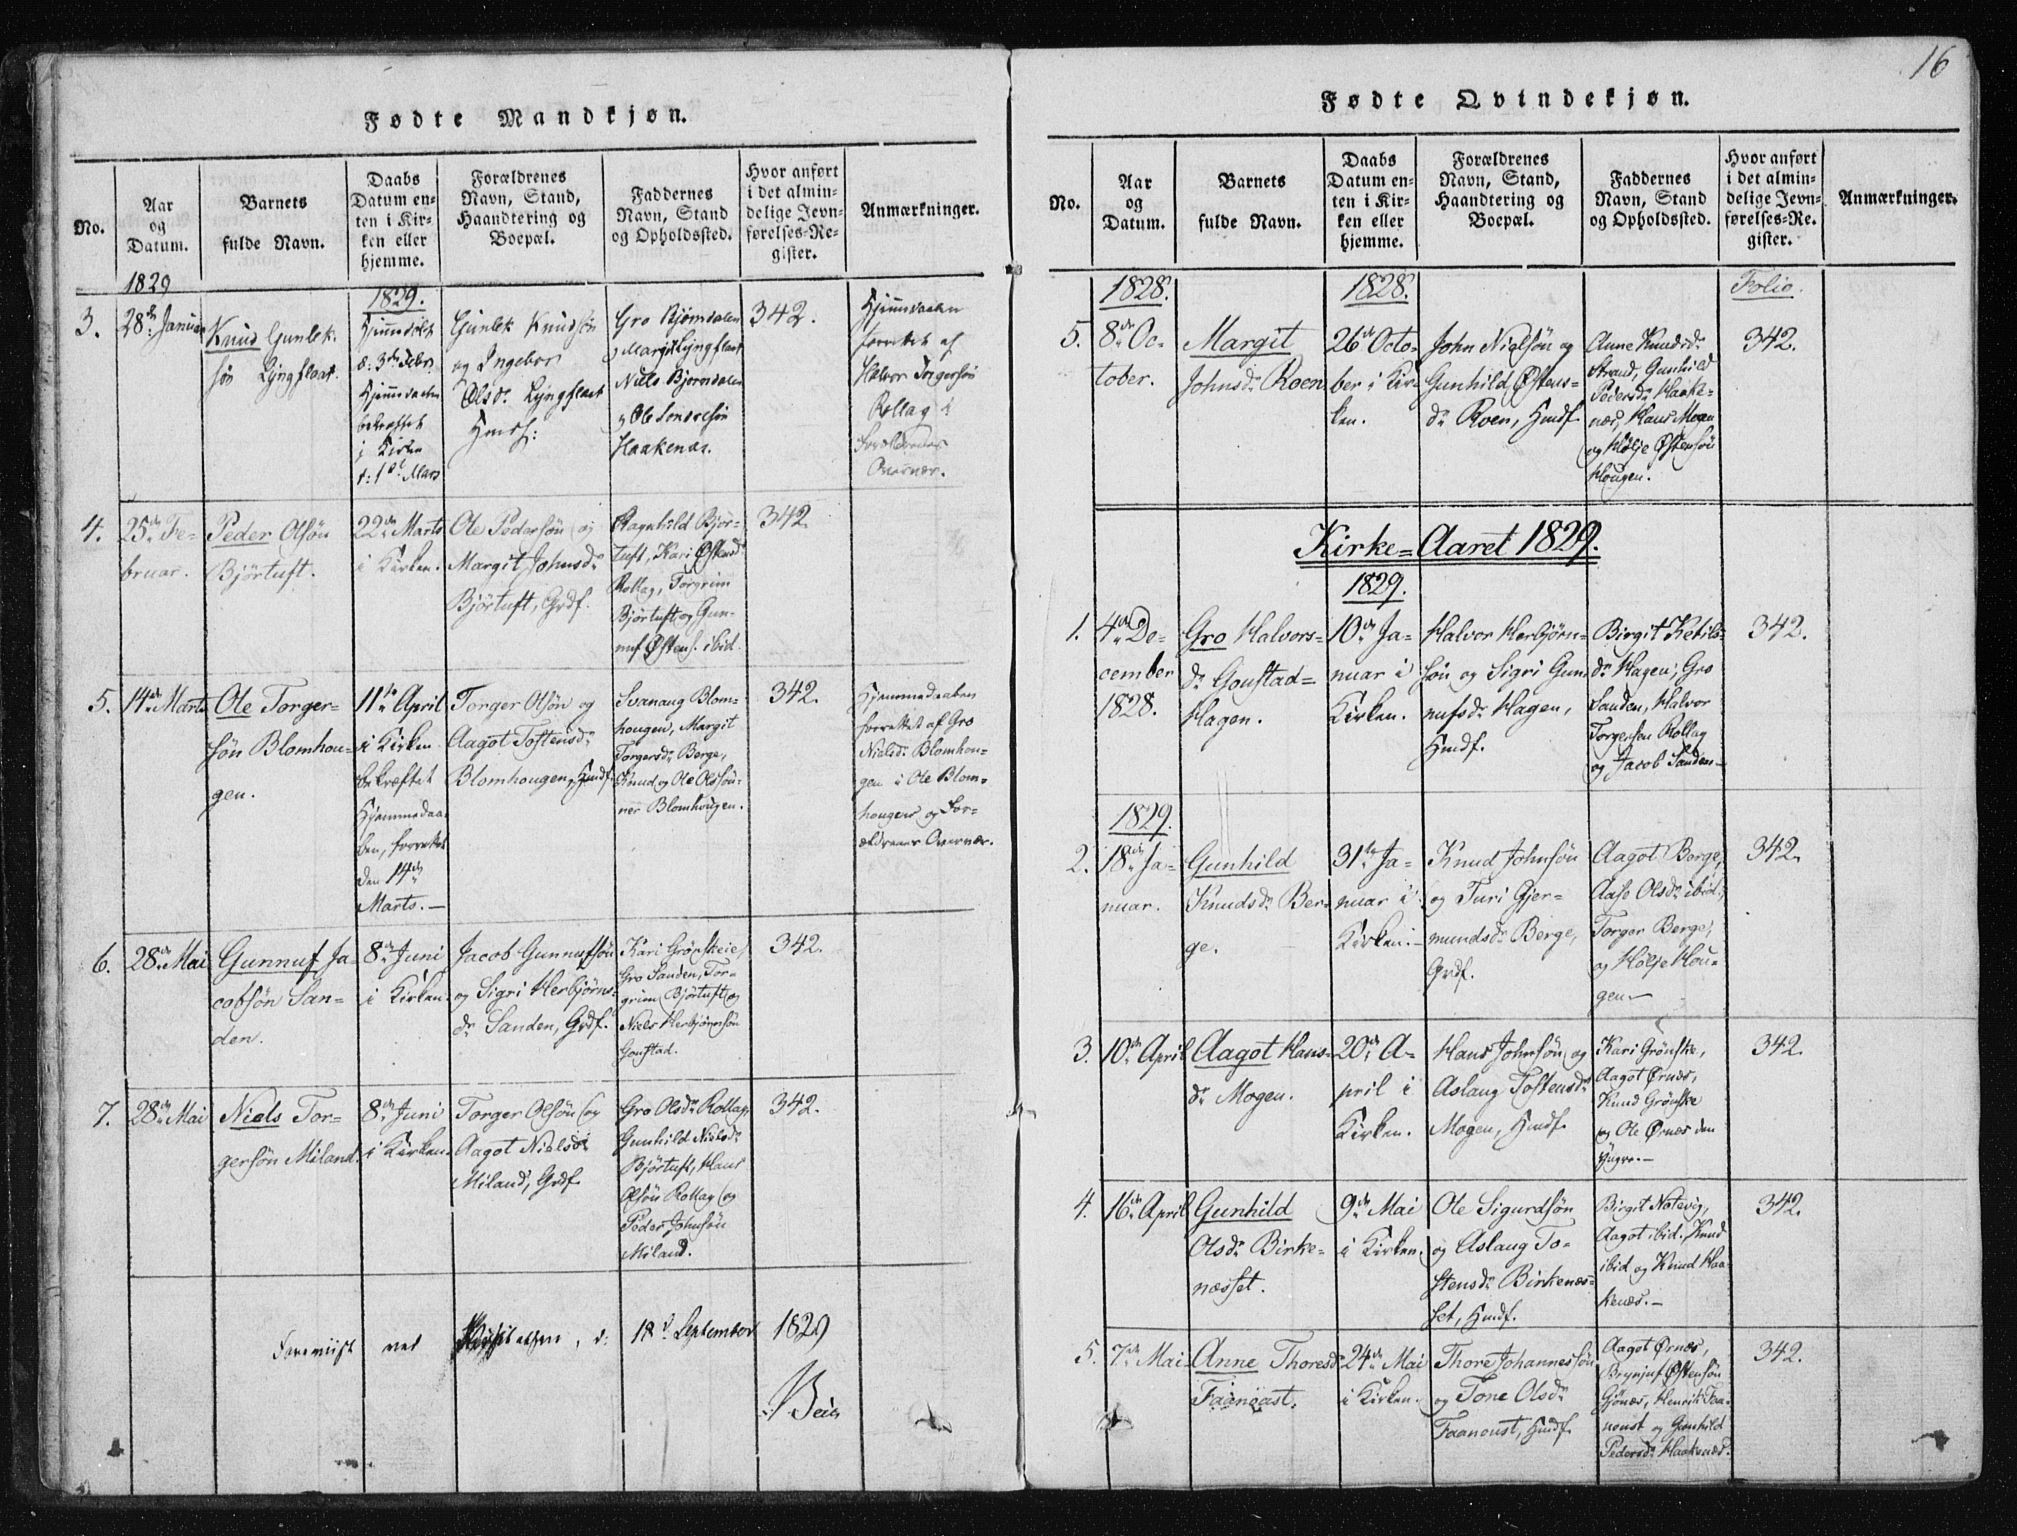 16
Fødte Mandkjøn.
No.
Aar
og
Datum.
Barnets
fulde Navn.
Daabs
Datum en-
ten i Kir-
ken eller
hjemme.
Forældrenes
Navn, Stand,
Haandtering og
Boepæl.
Faddernes
Navn, Stand
og Opholdssted.
Hvor anført
i det almin-
delige Jevn-
førelses-Re-
gister.
Anmærkninger.
1829
1829.
3.
28de Januar
Knud Gunlek-
søn Lyngflaat.
Hjemmedøbt
d: 3de Febr.
Hjemmedaaben
bekræftet
i Kirken
d: 1ste Mars
Gunlek Knudsøn
og Ingebor
Olsdr. Lyngflaat
Hmdf:
Gro Bjørndalen
Margit Lyngflaat
Niels Bjørndalen
Haakenæs.
342.
Hjemmedaaben
forrettet af
Halvor Torgersøn
Rollag i
Forældrenes
Overvær.
4.
25de Fe-
bruar.
Peder Olsøn
Bjørtuft.
22de Marts
i Kirken.
Ole Pedersøn og
Margit Johnsdr.
Bjørtuft, Grdf.
Ragnhild Bjør-
tuft, Kari Østensdr.
Rollag, Torgrim
Bjørtuft og Gun-
nuf Østens. ibid.
342.
5.
14de Marts
Ole Torger-
søn Blomhou-
gen.
11te April
i Kirken
bekræftet
Hjemmedaa-
ben, forrettet
den 14de
Marts.
Torger Olsøn og
Aagot Tostensdr.
Blomhougen, Hmdf.
Svanaug Blom-
hougen, Margit
Torgersdr. Berge,
Knud og Ole Olssøn-
ner Blomhougen.
342.
Hjemmedaaben
forrettet af Gro
Nielsdr. Blomhou-
gen i Ole Blom-
hougens og For-
ældrenes Overvær.
6.
28de Mai
Gunnuf Ja-
cobsøn San-
den.
8de Juni
i Kirken.
Jacob Gunnufsøn
og Sigri Herbjørns-
dr. Sanden, Grdf.
Kari Grønskeie,
Gro Sanden, Tor-
grim Bjørtuft og
Niels Herbjørnsøn
Goustad.
342.
7.
28de Mai
Niels Tor-
gersøn Miland.
8de Juni
i Kirken.
Torger Olsøn og
Aagot Nielsdr.
Miland, Grdf.
Gro Olsdr. Rollag,
Gunhild Nielsdr.
Bjørtuft, Hans
Olsøn Rollag og
Peder Johnsøn
Miland.
342.
Foreviist ved Visitatsen, d: 18de September 1829
Fødte Qvindekjøn.
No.
Aar
og
Datum.
Barnets
fulde Navn.
Daabs
Datum en-
ten i Kir-
ken eller
hjemme.
Forældrenes
Navn, Stand,
Haandtering og
Boepæl.
Faddernes
Navn, Stand
og Opholdssted.
Hvor anført
i det almin-
delige Jevn-
førelses-Re-
gister.
Anmærkninger.
1828.
1828.
Folio.
5.
8de Oc-
tober.
Margit
Johnsdr. Roen
26de Octo-
ber i Kir-
ken.
John Nielsøn og
Gunhild Østens-
dr. Roen, Hmdf.
Anne Knudsdr.
Strand, Gunhild
Pedersdr. Haake-
næs, Hans Mogen
og Hølje Østensøn
Hougen.
342.
Kirke-Aaret 1829.
1829.
1.
4de De-
cember
1828.
Gro Halvors-
dr. Goustad-
Hagen.
10de Ja-
nuar i
Kirken.
Halvor Herbjørn-
søn og Sigri Gun-
nufsdr. Hagen,
Hmdf.
Birgit Ketils-
dr. Hagen, Gro
Sanden, Halvor
Torgersen Rollag
og Jacob Sanden.
342.
1829.
2.
18de Ja-
nuar.
Gunhild
Knudsdr. Ber-
ge.
31te Ja-
nuar i
Kirken.
Knud Johnsøn
og Turi Gjer-
mundsdr. Berge,
Grdf.
Aagot Berge,
Aase Olsdr. ibid,
Torger Berge,
og Hølje Hou-
gen
342.
3.
10de April
Aagot Hans-
dr. Mogen.
20de A-
pril i
Kirken.
Hans Johnsøn og
Aslaug Tostensdr.
Mogen, Hmdf.
Kari Grønske,
Aagot Ørnæs,
Knud Grønske
og Ole Ørnæs den
Yngre.
342.
4.
16de April
Gunhild
Olsdr. Birke-
næsset.
9de Mai
i Kirken.
Ole Sigurdsøn
og Aslaug To-
stensdr. Birkenæs-
set, Hmdf.
Birgit Natevig,
Aagot ibid, Knud
ibid og Knud Haa-
kenæs.
342.
5.
7de Mai
Anne Thoresdr.
Faanoust.
24de Mai
i Kirken.
Thore Johannessøn
og Tone Olsdr.
Faanoust, Hmdf.
Aagot Ørnæs,
Brynjuf Østensøn
Gjønæs, Henrik Faa-
noust og Gunhild
Pedersdr. Haakenæs.
342.